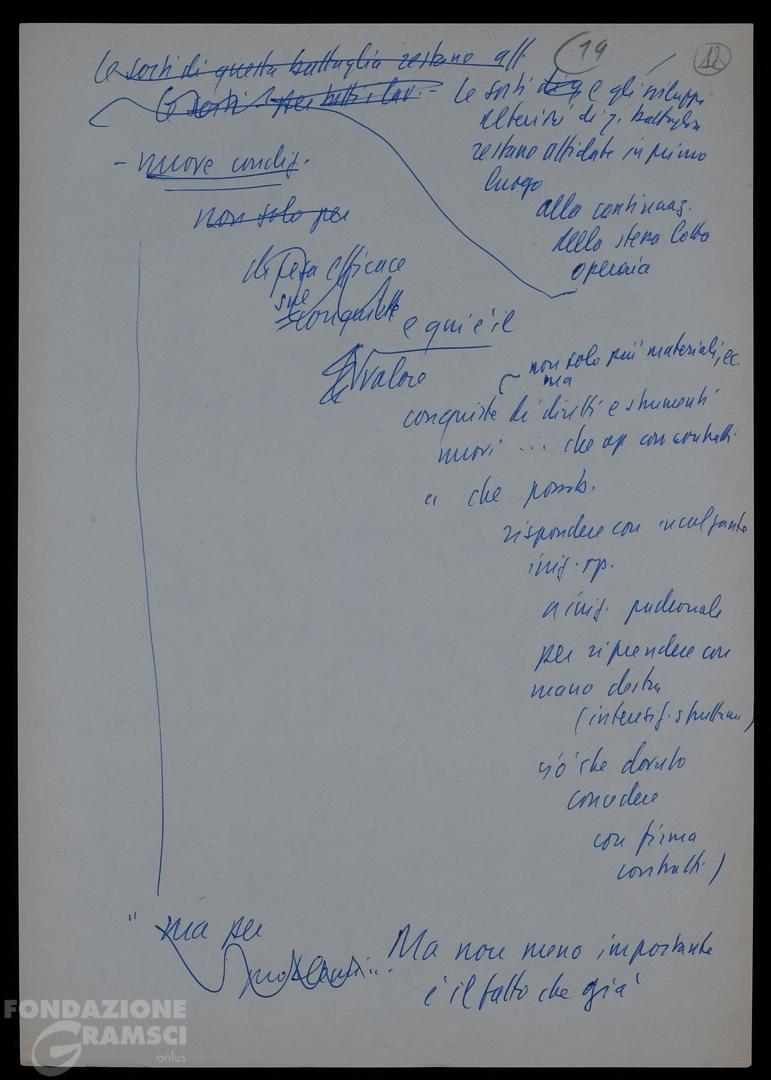 19
12
Le sorti di questa battaglia restano all
Le sorti per tutti i lav.
Le sorti di q e gli sviluppi
ulteriori di q. battaglia
restano affidate in primo
luogo
alla continuaz.
della stessa lotta
operaia
- nuove condiz.
non solo per
difesa efficace
sue
conquiste
e qui è il
valore
non solo più materiali, ec.
ma
conquiste di diritti e strumenti
nuovi ... che op con contratti
" che possib.
rispondere con incalzante
iniz. op.
a iniz. padronale
per riprendere con
mano destra
(intensif. sfruttam)
ciò che dovuto
concedere
con firma
contratti)
" ma per
Ma non meno importante
è il fatto che già
FONDAZIONE
GRAMSCI
onlus